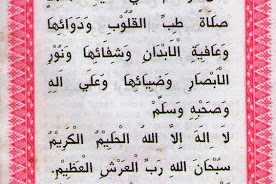 صَلَاةَ طِبِّ القُلُوْبِ وَدَوَائِهَا
وَعَافِيَةِ اْلأَبْدَانِ وَشِفَائِهَا وَنُوْرِ
اْلأَبْصَارِ وَضِيَائِهَا وَعَلَي آلِهِ
وَصَحْبِهِ وَسَلِّمْ
لَا اِلٰهَ اِلَّا اللهُ الْحَلِيْمُ الْكَرِيْمُ
سُبْحَانَ اللهِ رَبِّ الْعَرْشِ الْعَظِيْمِ.